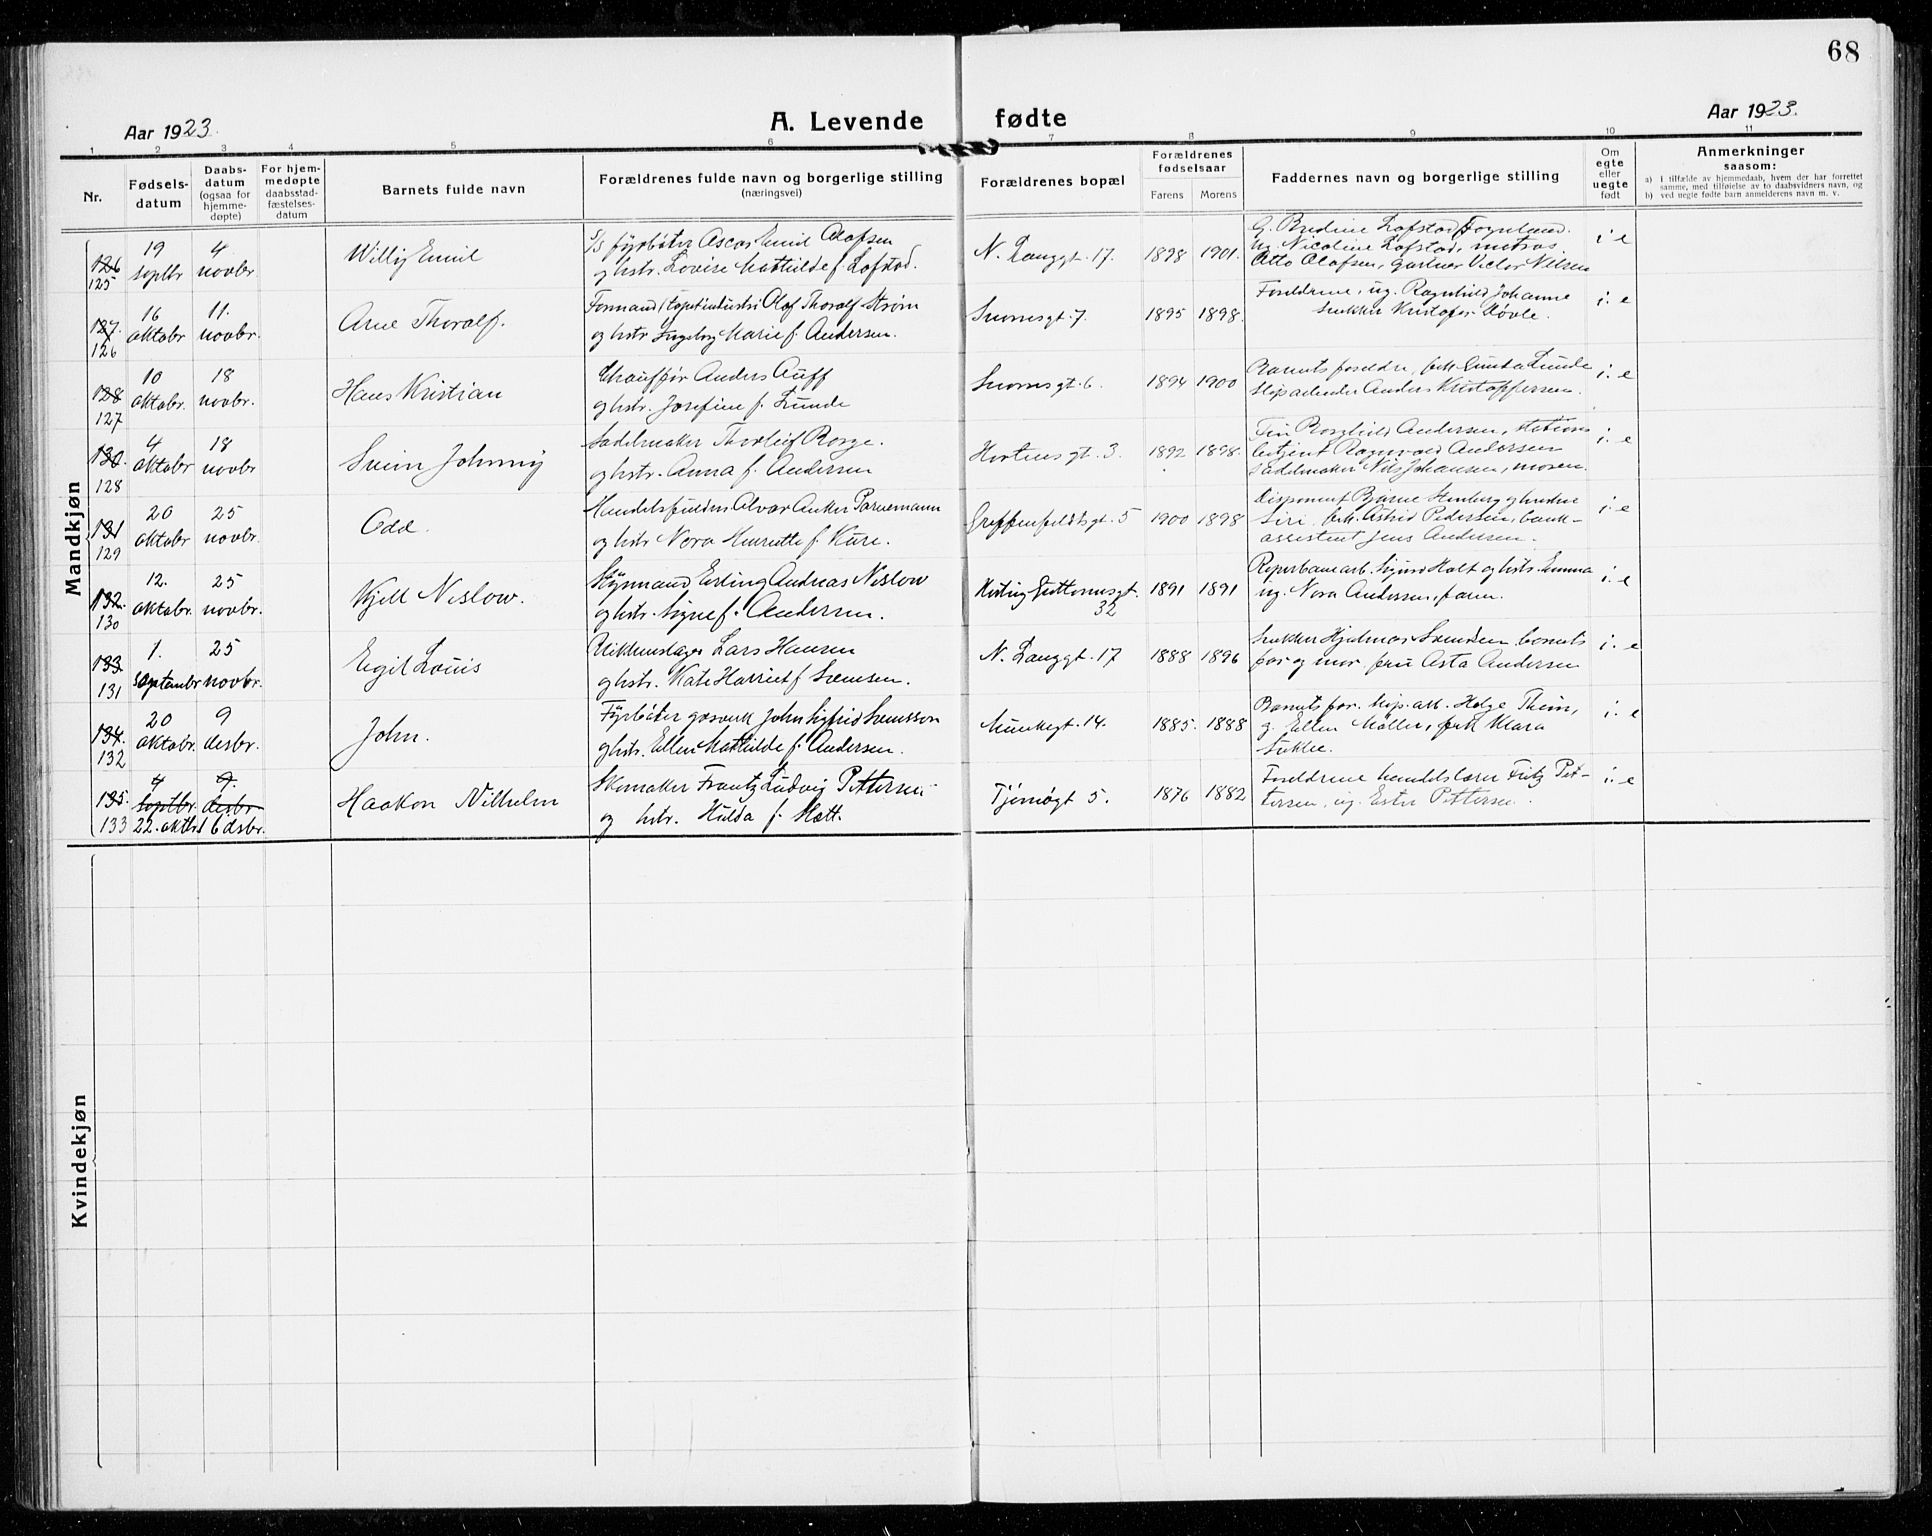 68
Aar 1923.
A. Levende fødte
Aar 1923.
1 2 3 4 5 6 7 8 9 10 11
Nr.
Fødsels-
datum
Daabs-
datum
(ogsaa for
hjemme-
døpte)
For hjem-
medøpte
daabsstad-
fæstelses-
datum
Barnets fulde navn
Forældrenes fulde navn og borgerlige stilling
(næringsvei)
Forældrenes bopæl
Forældrenes
fødselsaar
Farens Morens
Faddernes navn og borgerlige stilling
Om
egte
eller
uegte
født
Anmerkninger
saasom:
a) I tilfælde av hjemmedaab, hvem der har forrettet
samme, med tilføielse av to daabsvidners navn, og
b) ved uegte fødte barn anmelderens navn m. v.
Mandkjøn
126 125
19 septbr
4 novbr
Willy Emil
S/S fyrbøter Oscar Emil Olafsen
og hstr. Lovise Mathilde f. Lofstad.
N. Langgt. 17.
1898 1901.
G. Bredine Lofstad,
ug. Nicoline Lofstad, matros
Otto Olafsen, gartner Victor Nilsen
i e
127. 126
16 oktobr
11. novbr.
Arne Thoralf.
Formand Olaf Thoralf Strøm
og hstr Ingeborg Marie f. Andersen.
Snorresgt. 7.
1895 1898.
Foreldrene, ug. Ragnhild Johanne
Snekker Kristofer Høvle.
i. e
128 127
10 oktobr.
18 novbr.
Hans Kristian
Chauffør Anders Auff
og hstr. Josefine f. Lunde
Snorresgt. 6.
1894 1900
Barnets foreldre, frk Lunde
Skipsarbeider Anders Kristoffersen.
i. e
130. 128
4 oktobr
18 novbr
Svein Johnny
Sadelmaker Thorleif Rorge.
og hstr. Anna f. Andersen
Hortensgt. 3.
1892 1898.
Fru Ragnhild Andersen, stations
betjent Ragnvald Andersen
sadelmaker Nils Johansen, moren.
i. e
131 129
20 oktobr
25 novbr.
Odd.
Alvar Anker Parnemann
og hstr Nora Henriette f. Kure.
Greffenfeldtsgt. 5
1900 1898
Disponent Bjarne Stenberg og hustru
Siri, frk. Astrid Pedersen, bank-
assistent Jens Andersen.
i. e
132. 130
12. oktobr
25 novbr.
Kjell Nislow.
Styrmand Erling Andreas Nislow
og hstr. Signe f. Andersen.
32
1891 1891
Reperbanearb. Sigurd Holt og hstr. Emma
ug. Nora Andersen, faren.
i. e
133 131
1. septembr
25 novbr.
Eigil Louis
Blikkenslager Lars Hansen
og hstr. Kate Harriet f Svensen.
N. Langgt. 17
1888 1896
Snekker Hjalmar Svendsen barnets
far og mor. fru Asta Andersen
i. e
134. 132
20 oktobr.
9 desbr.
John.
Fyrbøter gasverk John Sigfrid Svensson
og hstr. Ellen Mathilde f. Andersen.
Munkegt. 14.
1885. 1888
Barnets far. skip. arb. Helge Thim,
g. Ellen Møller, frk Klara
i. e
135. 133
4 septbr. 22. oktbr
9. desbr 16 desbr.
Haakon Vilhelm
Skomaker Frantz Ludvig Pettersen
og hstr. Hulda f. Mott.
Tjømøgt 5.
1876 1882
Foreldrene handelslærer Fritz Pet-
tersen, ug. Ester Pettersen.
i. e
Kvindekjøn